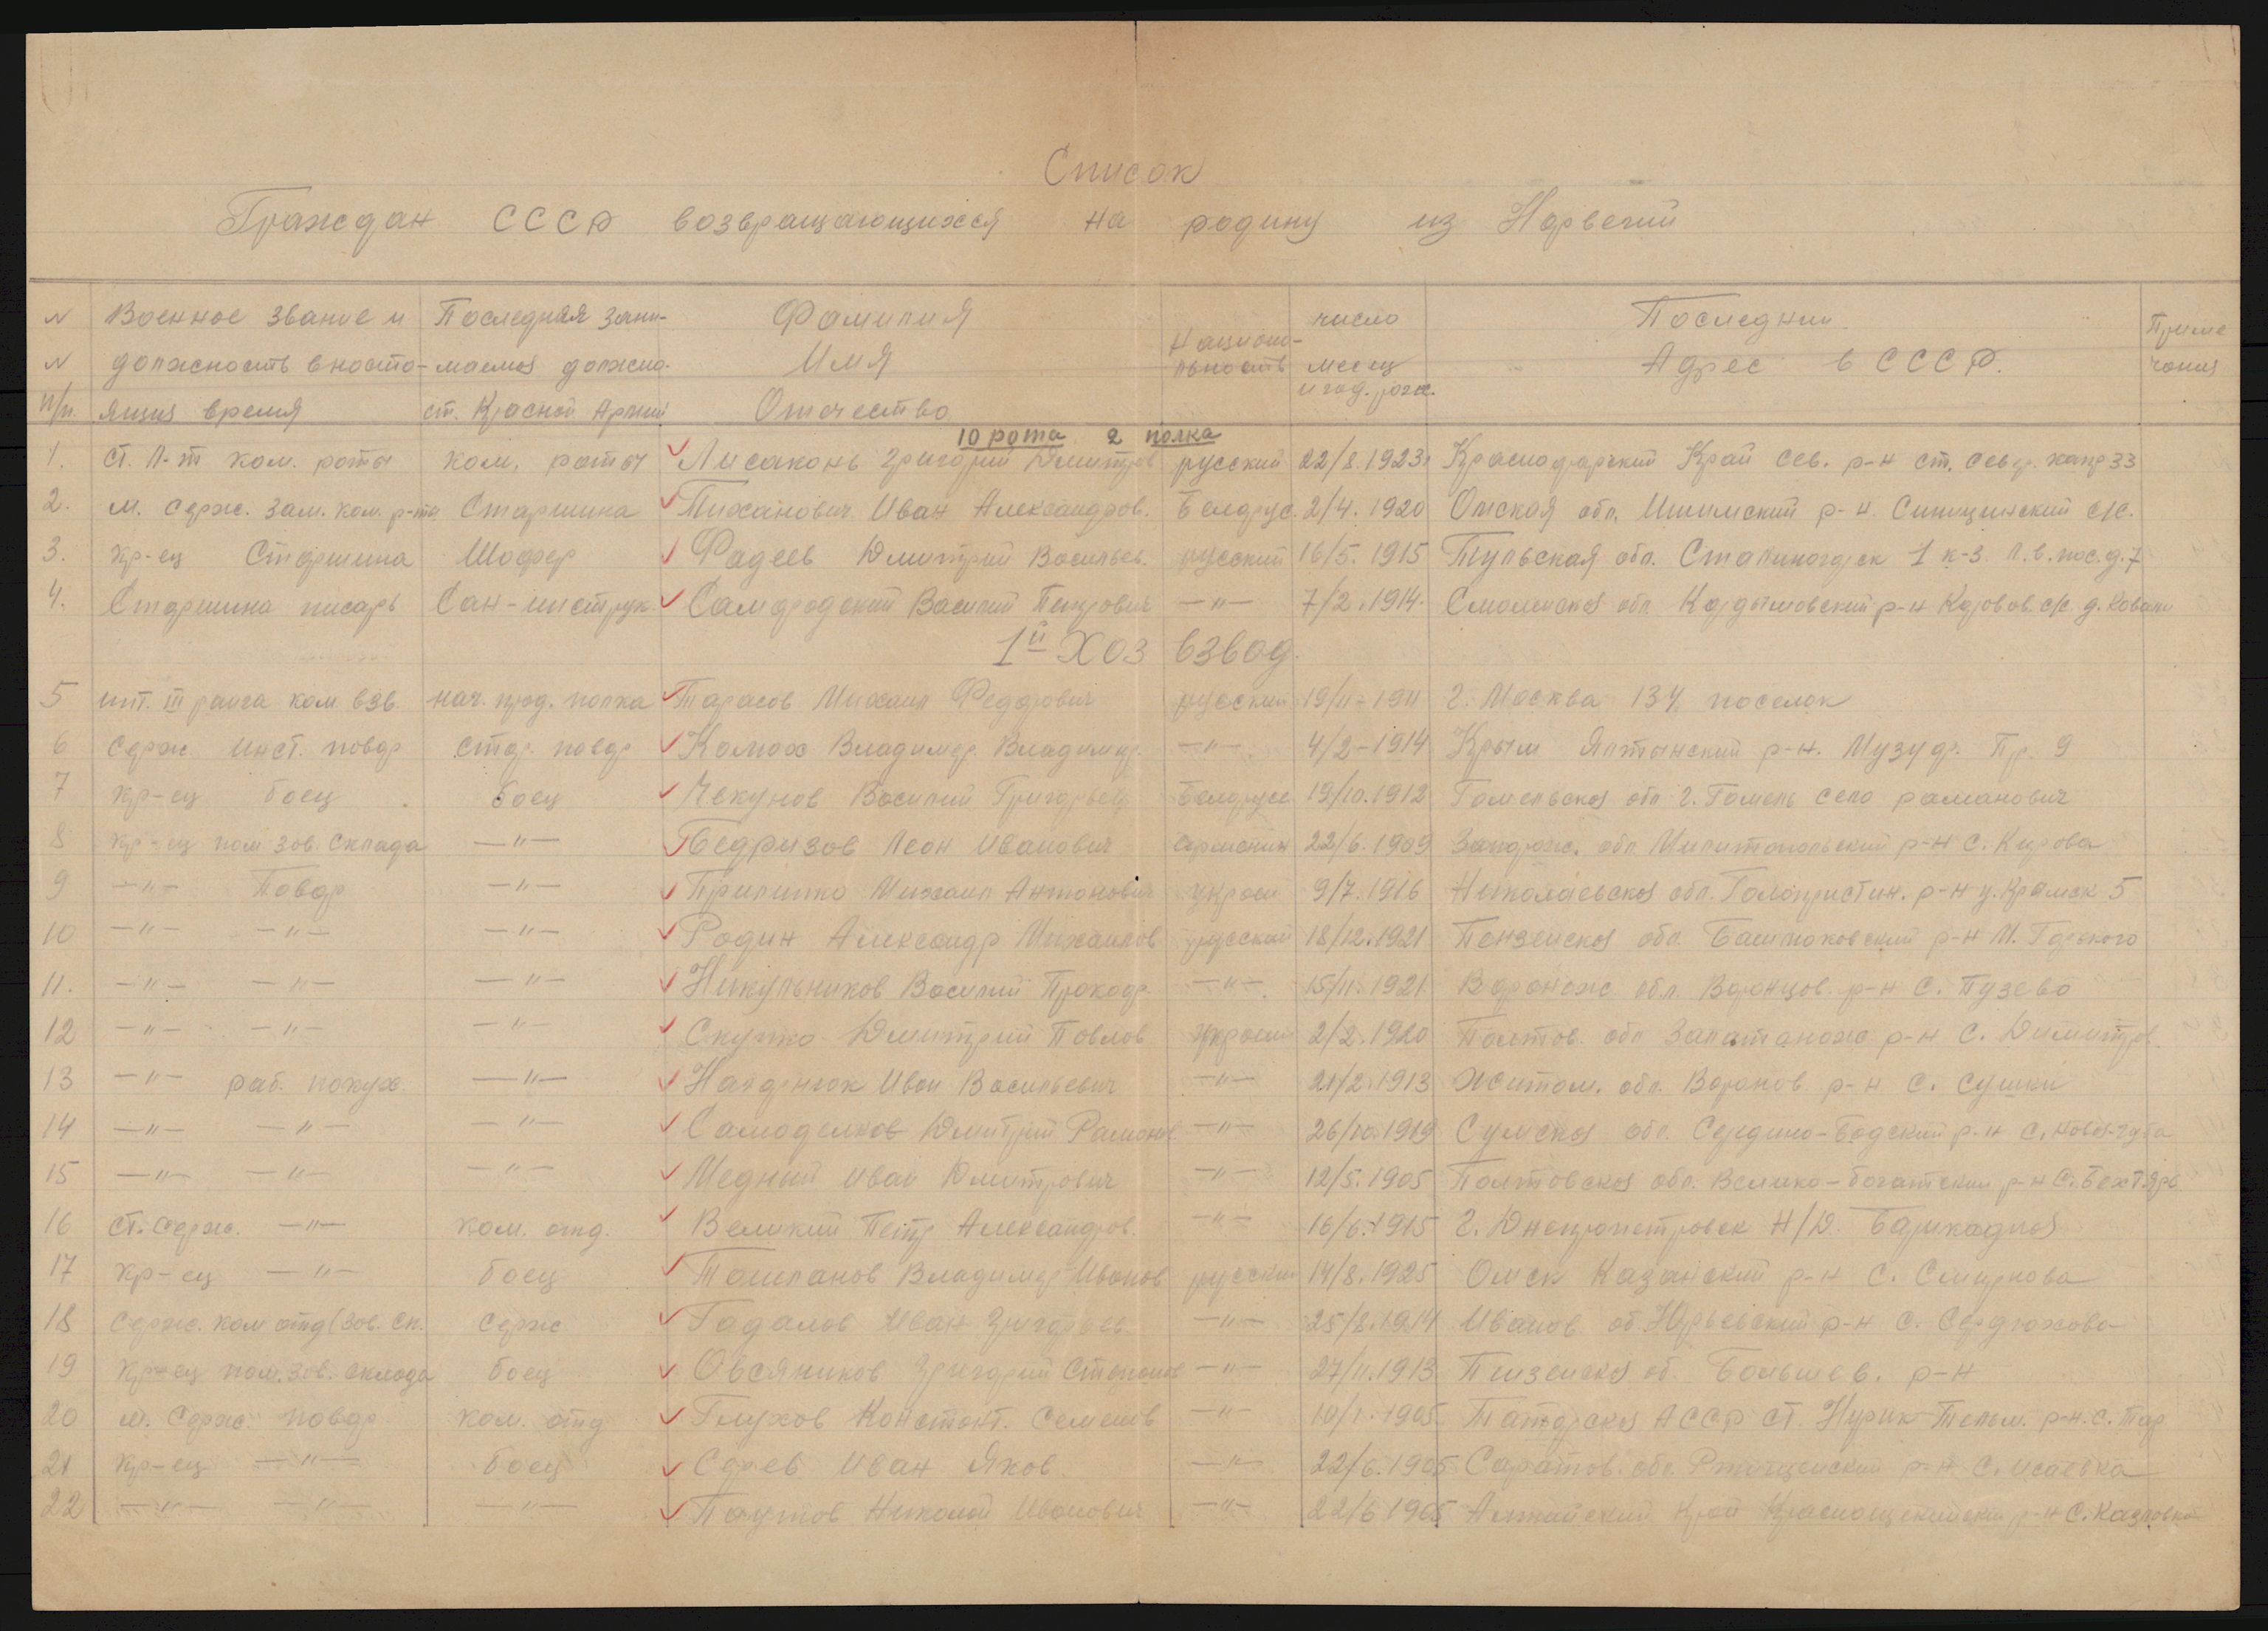 Список
Граждан СССР возвращающихся на родину из Норвегии
N N п/п. | Военное звание и должность в насто-ящия время | Последняя зани-маемая должно-ст. Красной Армии | Фамилия Имя Отчество | Национа-льность | число месец и год. рожд. | Последнии Адрес в СССР. | Приме чания
10 рота 2 полка
1. | ст. л-т ком. роты | ком. роты | Лисаконь Григорий Дмитров | русский | 22/8.1923 | Краснодарский Край Сев. р-н ст. Север.
2. | м. серж. зам. ком. р-ты | Старшина | Пиханович Иван Александров. | Белорус. | 2/4.1920 | Омская обл. Ишимский р-н Синицинский с/с.
3. | кр-ец Старшина | Шофер | Фадеев Дмитрий Васильев. | русский | 16/5.1915 | Тульская обл. Сталиногорск 1 к-з п.в. пос. д. 7
4. | Старшина писарь | Сан-инструк. | Самородский Василий Петрович | —"— | 7/2.1914. | Смоленская обл. Кардымовский р-н с/с. д. Ковали
1й Хоз взвод.
5 | инт. III ранга ком. взв. | нач. прод. полка | Тарасов Михаил Федорович | русский | 19/11-1911 | г. Москва поселок
6 | серж. инст. повар | стар. повар | Комах Владимер. Владимир. | —"—. | 4/2-1914 | Крым Ялтынский р-н. Пр. 9
7 | кр-ец боец | боец | Чекунов Василий Григорьев | Белорусс | 19/10.1912 | Гомельская обл г. Гомель село раманович
8 | кр-ец пом зав. склада | —"— | Бедризов Леон Иванович | армянин | 22/6.1909 | Запорож. обл Милитопольский р-н с. Кирова
9 | —"— Повар | —"— | Прилипко Михаил Антонович | украин | 9/7.1916 | Николаевская обл. Голопристин. р-н 5
10 | —"— —"— | —"— | Родин Александр Михаилов | русский | 18/12.1921 | Пензенская обл. Башмаковский р-н М. Горького
11. | —"— —"— | —"— | Никульников Василий Прохор. | —"—. | 15/11.1921 | Воронеж обл. Воронцов. р-н с. Пузево
12 | —"— —"— | —"— | Скутко Дмитрий Павлов | украин | 2/2.1920 | Полтов. обл р-н с. Димитров.
13 | —"— раб. по кухо. | —"— | Иван Васильевич | —"— | 21/2.1913 | Житом. обл. р-н с. Сушки
14 | —"— —"— | —"— | Самоделков Дмитрий | —"— | 26/10.1919 | Сумская обл. Середино-Бодский р-н с.
15 | —"— —"— | —"— | Медный Иван Дмитрович | —"— | 12/5.1905 | Полтовская обл. Велико-богатский р-н с.
16 | ст. серж. —"— | ком. отд. | Великий Петр Александров. | —"— | 16/6.1915 | г. Днепропетровск Н/Д. Барикадная
17 | кр-ец —"— | боец | Владимер Иванов | русский | 14/8.1925 | Омск Казанский р-н с. Смирнова
18 | серж. ком отд (зав. ск. | серж | Гадалов Иван Григорьев. | —"— | 25/8.1914 | Иванов об. Юрьевский р-н с. Сердюхово
19 | кр-ец пом. зав. склада | боец | Овсяников Григорий Степанов | —"— | 27/11.1913 | Пензенская об. Больше в. р-н
20 | м. Серж. повар | ком. отд | Глухов Констант. Семенов | —"— | 10/1.1905. | Татарская АССР ст. р-н. с.
21 | кр-ец —"— | боец | Иван Яков. | —"— | 22/6.1905 | Саратов. обл. Ртищенский р-н с. Исаевка
22 | —"— —"— | —"— | Николай Иванович | —"— | 22/6 1905 | Алтайский Край р-н с.